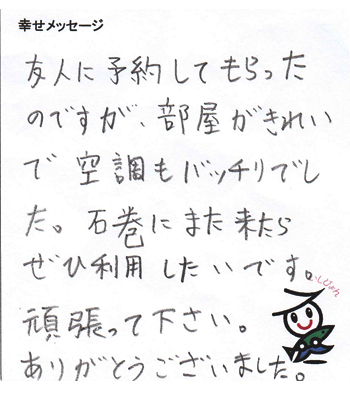 幸せメッセージ
友人に予約してもらった
のですが、部屋がきれい
で空調もバッチリでし
た。石巻にまた来たら
ぜひ利用したいです。
頑張って下さい。
ありがとうございました。